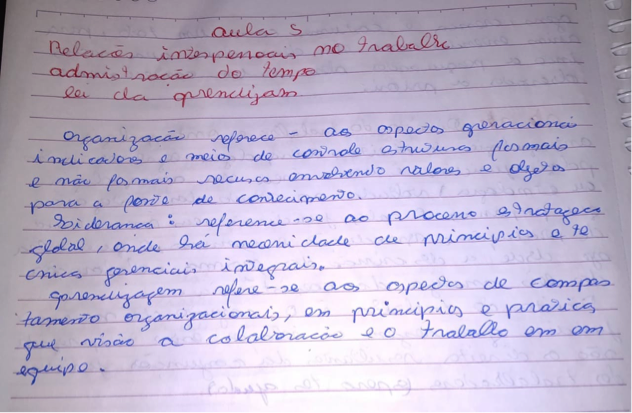 aula 5
Relacões interpessoais no trabalho
administracão do tempo
lei da aprendizam
Organizacão referece - ao aspecto operacional
indicadores e meio de controle estruturas formais
e não formais recurso envolvendo valores e objetos
para a fonte de conhecimento.
Liderança: reference-se ao processo estrategico
global, onde há necessidade de principios e te
cnica gerenciais integrais.
aprendizagem refere-se aos aspectos de compos
tamento organizacionais, em principios e pratica
que visão a colaboração e o trabalho em em
equipe.